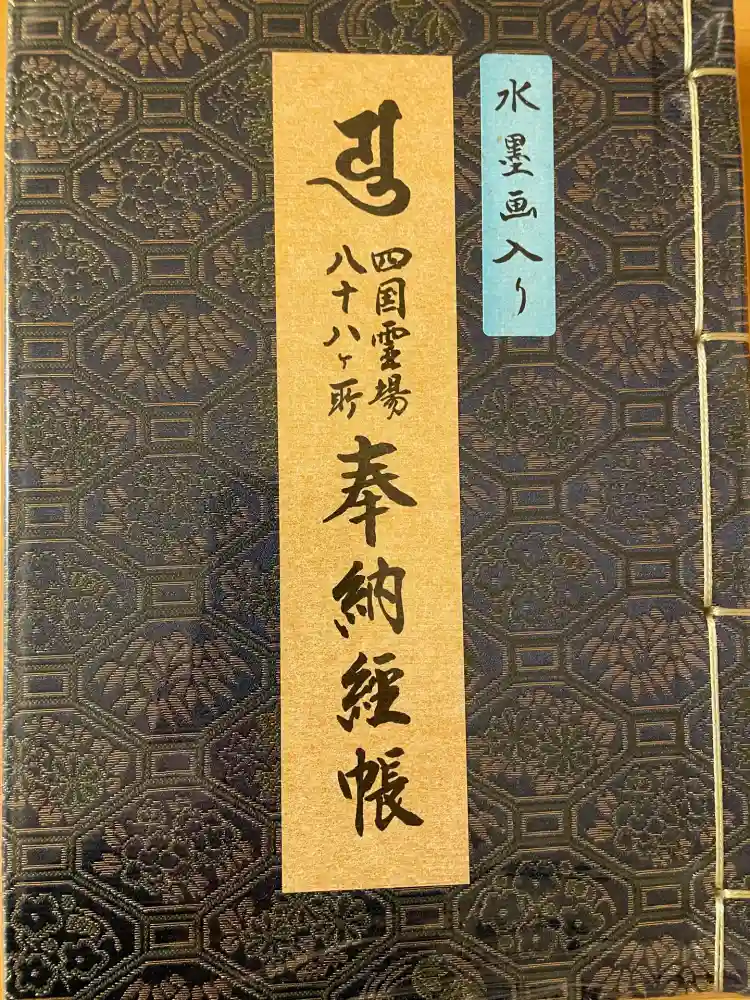 水墨画入り
四国霊場
八十八ヶ所
奉納経帳